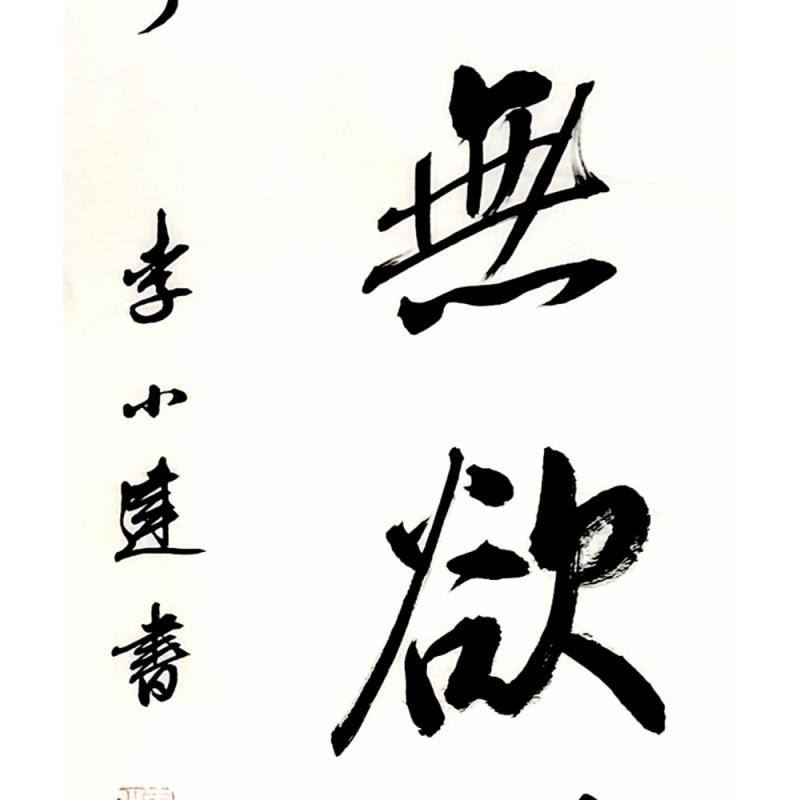 無欲
李小達書